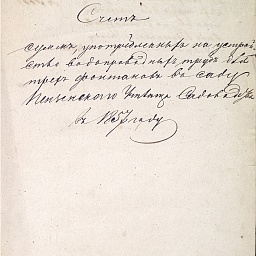 Счетъ
суммъ употребленныхъ на устрой
ство водопроводныхъ трубъ для
трехъ фонтановъ въ саду
Пензенского Училища Садоводства
въ 1857 году